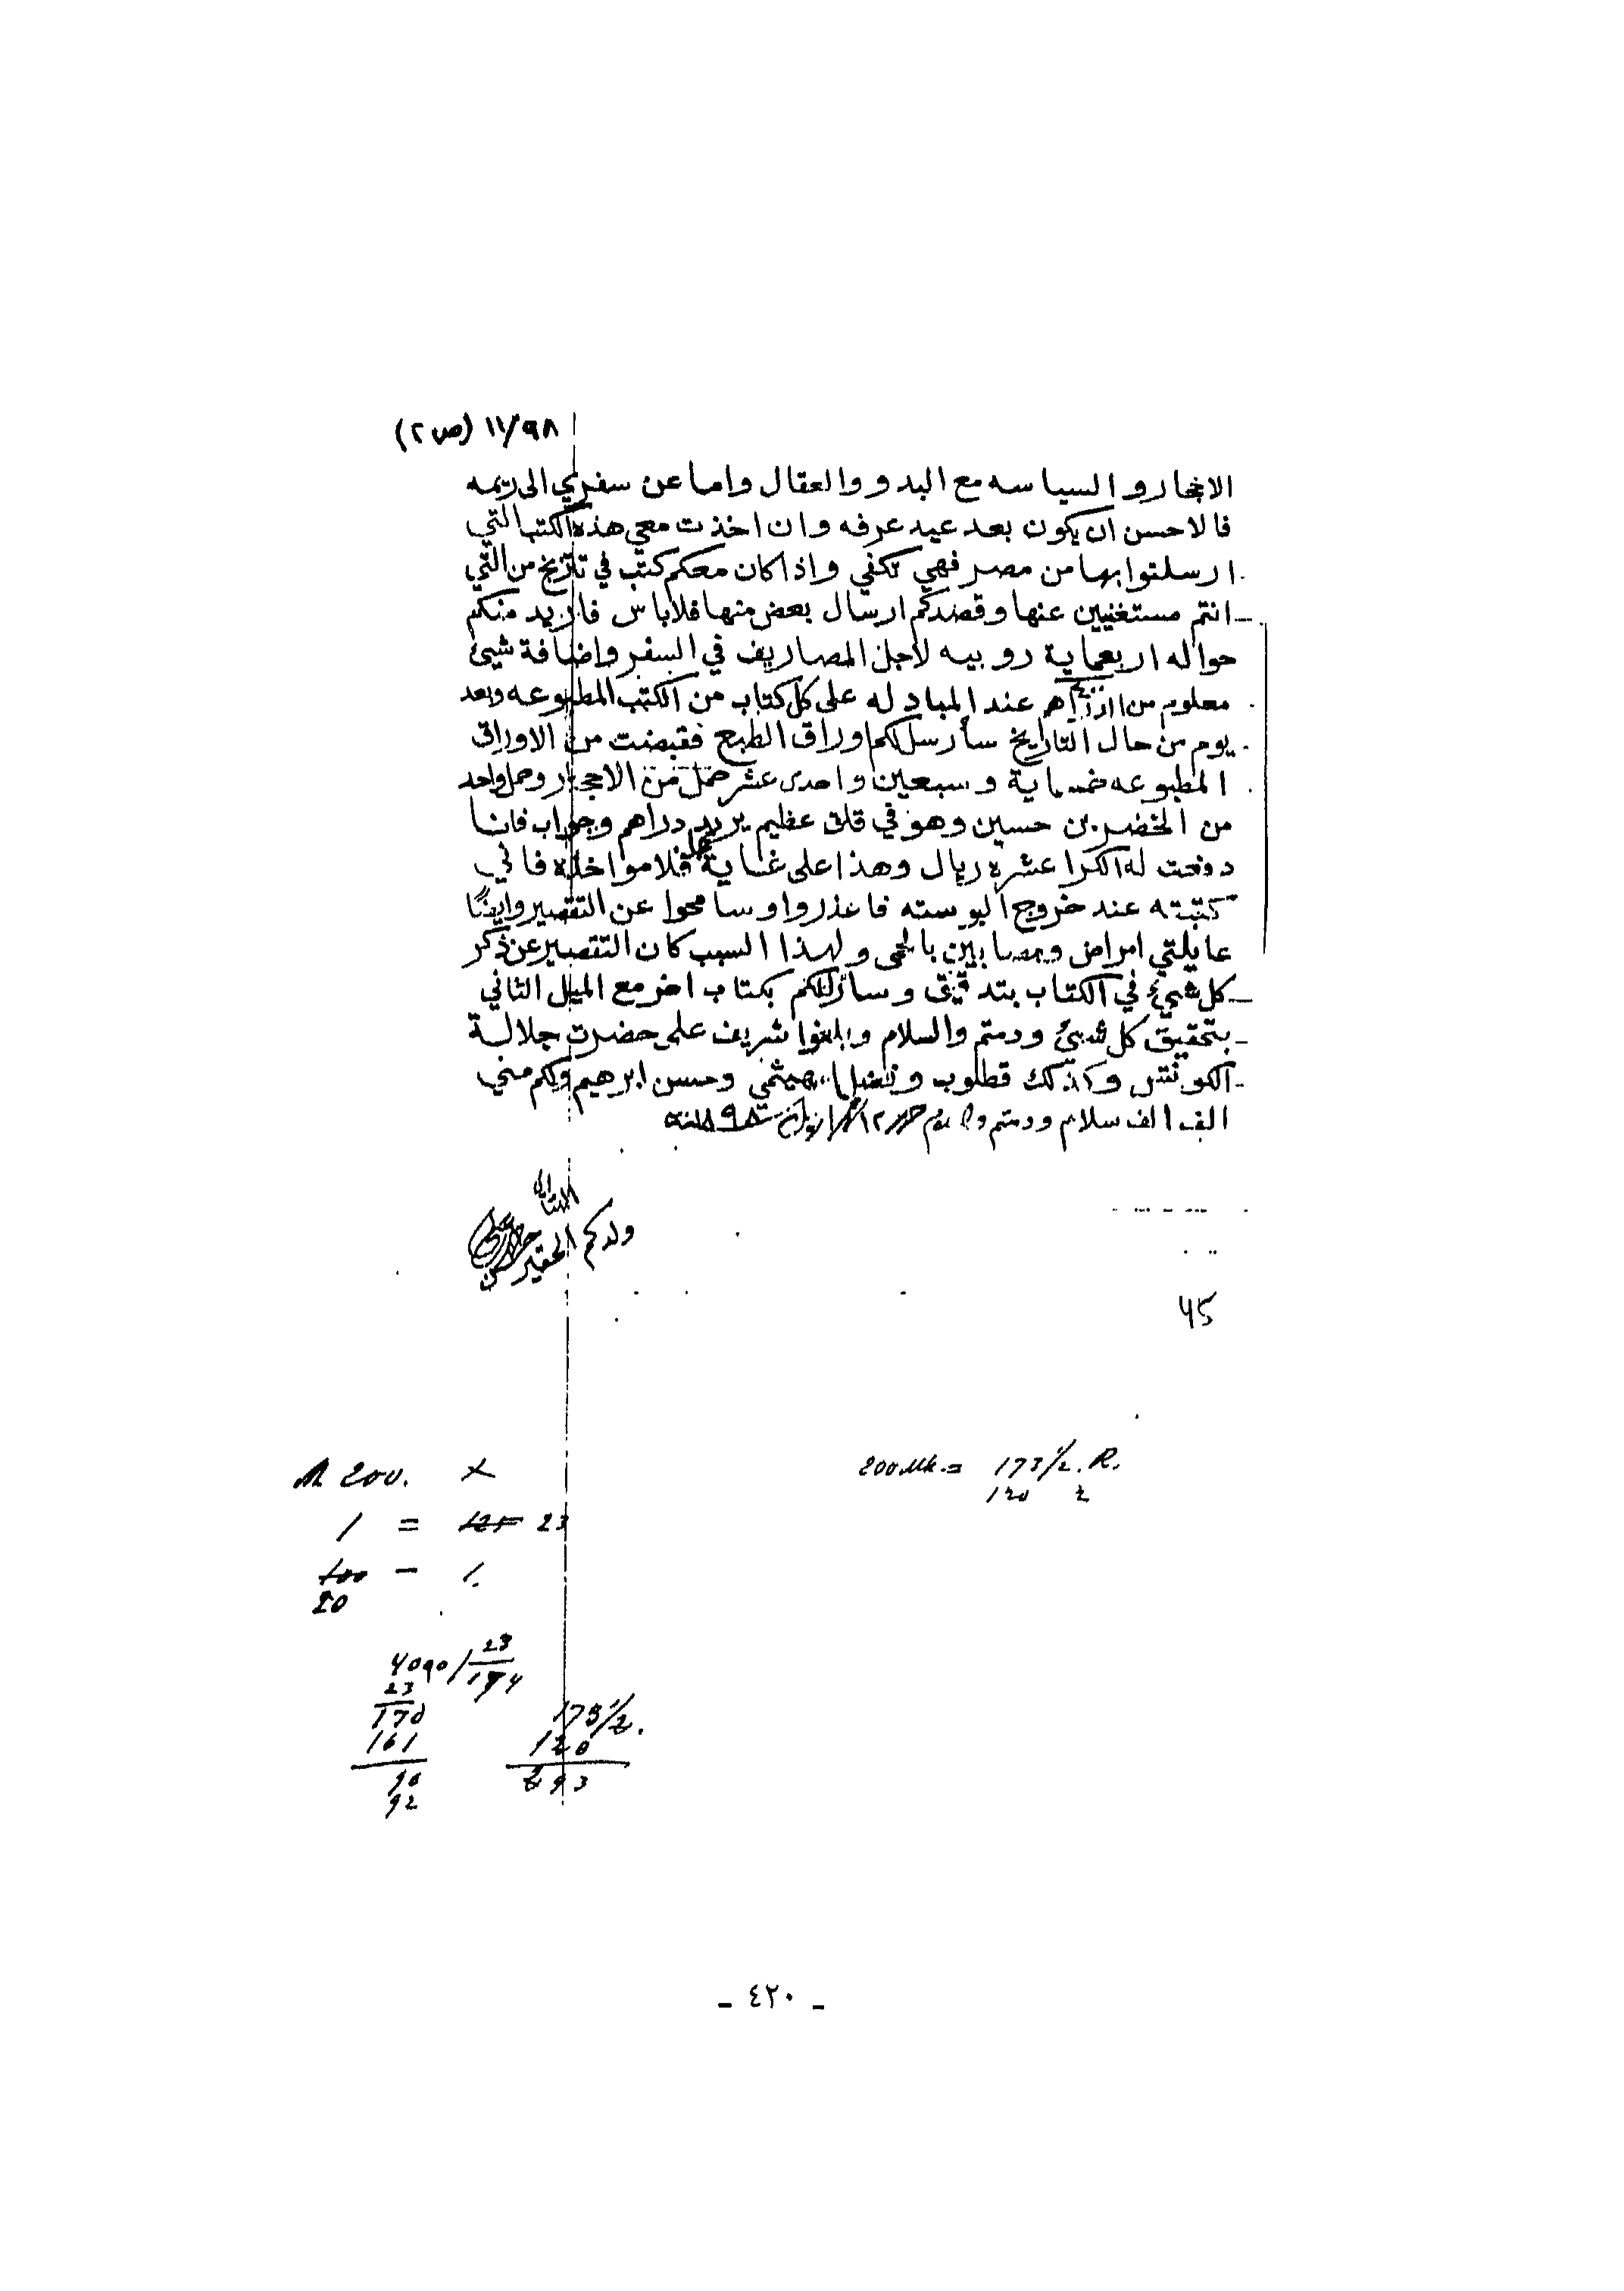 ١١/٩٨ (ص ٢)
الاخبار والسياسه مع البدو والعقال واما عن سفري الى ريمه
فالاحسن ان يكون بعد عيد عرفه وان اخذت معي هذه الكتب التي
ارسلتوا بها من مصر فهي تكفي واذا كان معكم كتب في تاريخ من التي
انتم مستغنيين عنها وقصدكم ارسال بعض منها فلاباس فاريد منكم
حواله اربعماية روبيه لاجل المصاريف في السفر واضافة شيئ
معلوم من الدراهم عند المبادله على كل كتاب من الكتب المطبوعه وبعد
يوم من حال التاريخ سأرسل لكم اوراق الطبع فقبضت من الاوراق
المطبوعه خمسماية وسبعين واحدى عشر حمل من الاحجار وحمل واحد
من الخضر بن حسين وهو في قلق عظيم يريد دراهم وجواب فانا
دفعت له الكرا عشره ريال وهذا على غناية فلا مواخذه فاني
كتبته عند خروج البوسته فاعذروا وسامحوا عن التقصير وايضًا
عايلتي امراض ومصابين بالحمى ولهذا السبب كان التقصير عن ذكر
كل شيئ في الكتاب بتدقيق وسأرسل لكم بكتاب اخر مع الميل الثاني
بتحقيق كل شيئ ودمتم والسلام وبلغوا شريف على حضرت جلالة
الكونتس وكذلك قطلوب وفضل هيثمي وحسن ابرهيم ولكم مني
الف الف سلام ودمتم سنه ١٨٩٨
ولدكم الحقير
45
M 200. x
200 Mk. = 173 1/2. R.
120 2
1 = 121 23
100 - 1.
20
4090 / 23
174
23
170
161
90
92
173 1/2.
120
293
- ٤٢٠ -